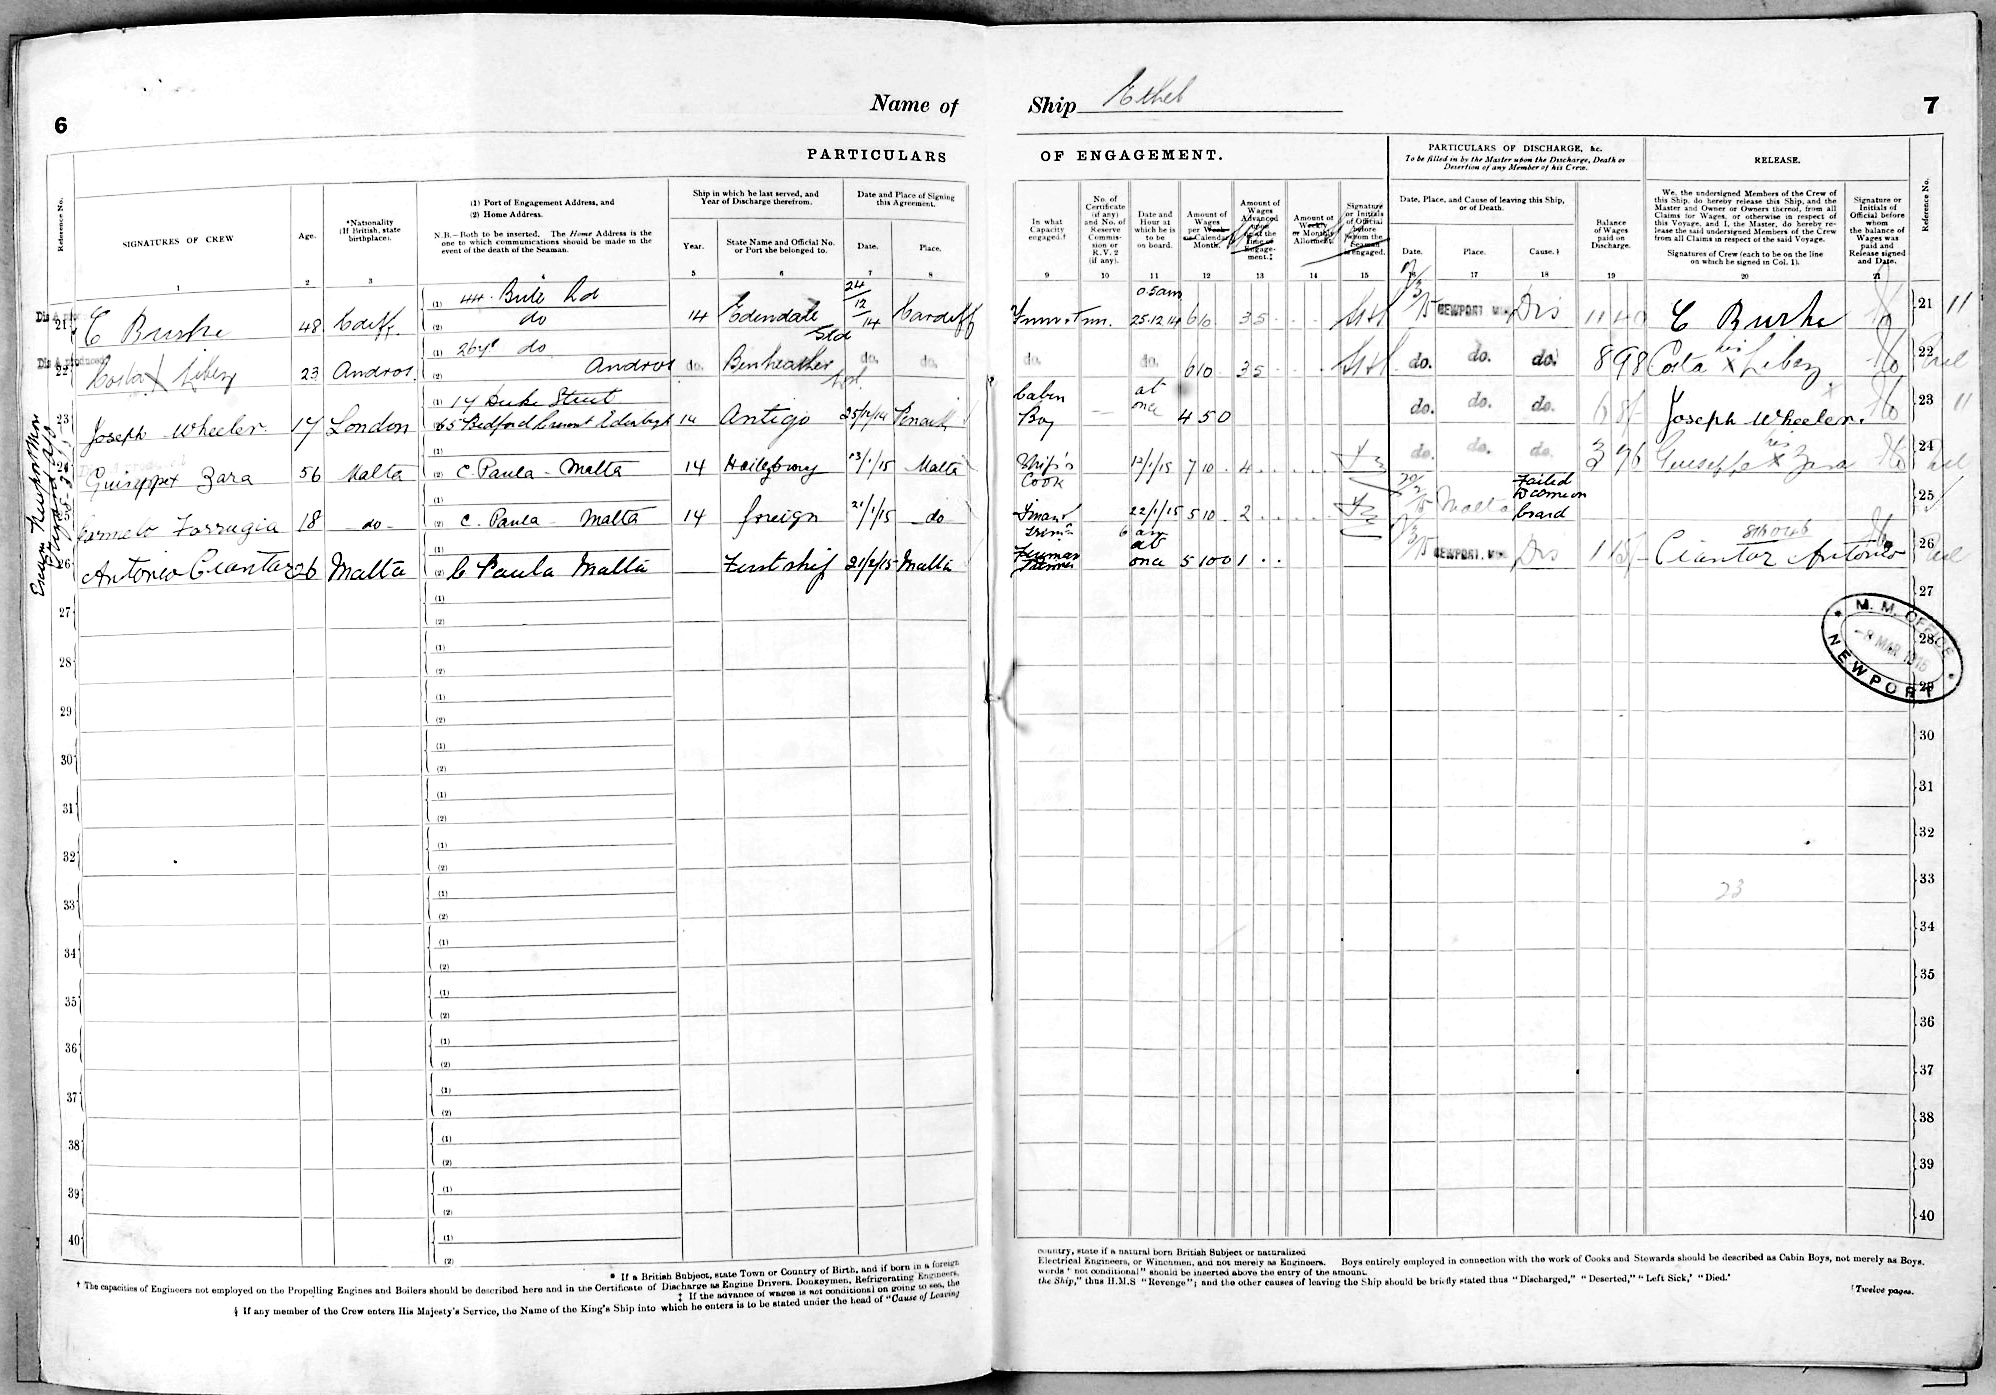 6
Name of
Ship Ethel
7
PARTICULARS
OF ENGAGEMENT.
PARTICULARS OF DISCHARGE, &c.
To be filled in by the Master upon the Discharge, Death or Desertion of any Member of his Crew.
RELEASE.
Reference No.
SIGNATURES OF CREW
Age.
*Nationality (If British, state birthplace).
(1) Port of Engagement Address, and
(2) Home Address.
N.B.—Both to be inserted. The Home Address is the one to which communications should be made in the event of the death of the Seaman.
Ship in which he last served, and Year of Discharge therefrom.
Year.
State Name and Official No. or Port she belonged to.
Date and Place of Signing this Agreement.
Date.
Place.
In what Capacity engaged.†
No. of Certificate (if any) and No. of Reserve Commission or R.V. 2 (if any).
Date and Hour at which he is to be on board.
Amount of Wages per Week or Calendar Month.
Amount of Wages Advanced upon of the Time of Engagement.‡
Amount of Weekly or Monthly Allotment.
Signature or Initials of Official before whom the Seaman is engaged.
Date, Place, and Cause of leaving this Ship, or of Death.
Date.
Place.
Cause.§
Balance of Wages paid on Discharge.
We, the undersigned Members of the Crew of this Ship, do hereby release this Ship, and the Master and Owner or Owners thereof, from all Claims for Wages, or otherwise in respect of this Voyage, and I, the Master, do hereby release the said undersigned Members of the Crew from all Claims in respect of the said Voyage.
Signatures of Crew (each to be on the line on which he signed in Col. 1).
Signature or Initials of Official before whom the balance of Wages was paid and Release signed and Date.
Reference No.
1 2 3 5 6 7 8 9 10 11 12 13 14 15 16 17 18 19 20 21
21 C Burke 48 Cdiff. (1) 44 Bute Rd (2) do 14 Edendale Sld 24/12/14 Cardiff 25.12.14 6 10 35 NEWPORT MON. Dis C Burke 21
22 Costa X Libery 23 Andros (1) do (2) Andros do. Benheather do. do. do. do. 6 10 35 do. do. do. 8 9 8 Costa his X Libery 22
23 Joseph Wheeler 17 London (1) 17 Duke Street (2) 65 Bedford Crescent Edenburgh 14 Antigo Penarth Cabin Boy — at once 4 5 0 do. do. do. Joseph Wheeler. 23
24 Guiseppe X Zara 56 Malta (1) (2) C. Paula - Malta 14 Haileybury 13/1/15 Malta Ship's Cook 7 10 4 do. do. do. Guiseppe X Zara 24
Carmelo Farrugia 18 -do- (1) (2) C. Paula - Malta 14 foreign 21/1/15 -do 22/1/15 6 am 5 10 2 Malta Failed to come on board 25
26 Antonio Ciantar 26 Malta (1) (2) C Paula Malta — First ship Malta at once 5 10 0 1 NEWPORT, MON. Dis Ciantar Antonio 26
27 (1) (2) 27
28 (1) (2) 28
29 (1) (2) 29
30 (1) (2) 30
31 (1) (2) 31
32 (1) (2) 32
33 (1) (2) 33
34 (1) (2) 34
35 (1) (2) 35
36 (1) (2) 36
37 (1) (2) 37
38 (1) (2) 38
39 (1) (2) 39
40 (1) (2) 40
M. M. OFFICE
-8 MAR 1915
NEWPORT
23
* If a British Subject, state Town or Country of Birth, and if born in a foreign country, state if a natural born British Subject or naturalized
† The capacities of Engineers not employed on the Propelling Engines and Boilers should be described here and in the Certificate of Discharge as Engine Drivers, Donkeymen, Refrigerating Engineers, Electrical Engineers, or Winchmen, and not merely as Engineers. Boys entirely employed in connection with the work of Cooks and Stewards should be described as Cabin Boys, not merely as Boys.
‡ If the advance of wages is not conditional on going to sea, the words "not conditional" should be inserted above the entry of the amount.
§ If any member of the Crew enters His Majesty's Service, the Name of the King's Ship into which he enters is to be stated under the head of "Cause of Leaving the Ship," thus H.M.S "Revenge"; and the other causes of leaving the Ship should be briefly stated thus "Discharged," "Deserted," "Left Sick,' "Died.'
Twelve pages.